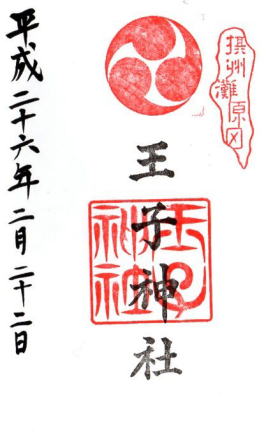 摂州灘原田
王子神社
王子
神社
平成二十六年二月二十二日